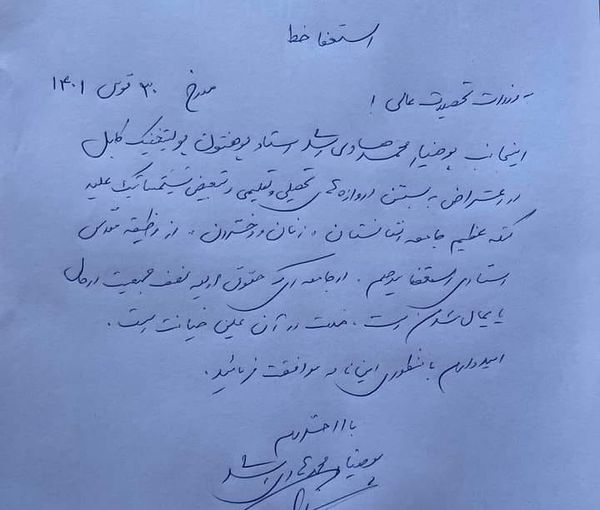 استعفا خط
مورخ ۳۰ قوس ۱۴۰۱
به وزارت تحصیلات عالی !
اینجانب پوهنیار محمد هادی راشد استاد پوهنتون پولیتخنیک کابل
در اعتراض به بستن دروازه های تحصیلی و تعلیمی و تبعیض سیستماتیک علیه
کتله عظیم جامعه افغانستان، زنان و دختران، از وظیفه مقدس
استادی استعفا میدهم. در جامعه ای که حقوق اولیه نصف جمعیت در حال
پایمال شدن است، خدمت در آن عین خیانت است.
امیدوارم با منظوری اینجانب موافقت فرمائید.
با احترام
پوهنیار محمد هادی راشد